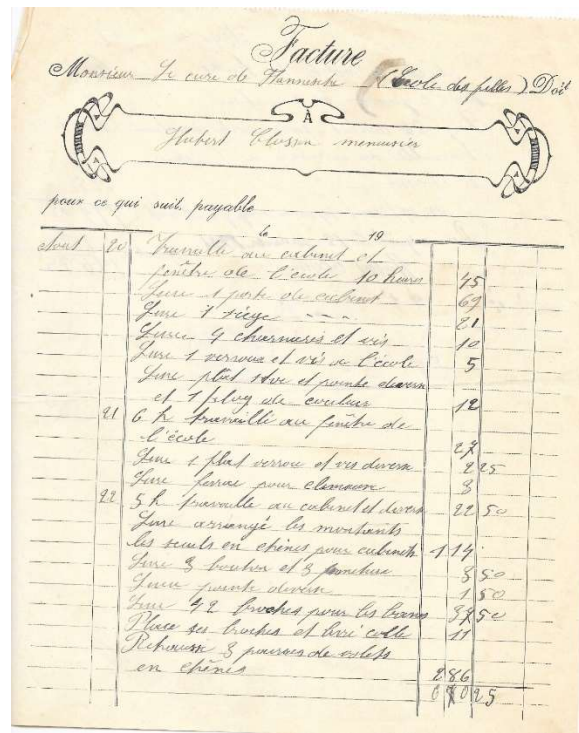 Facture
Monsieur Le cure de (Ecole des filles) Doit
À
Hubert Closson menuisier
pour ce qui suit, payable
le 19
Aout 20 Travaille au cabinet et
fenêtre de l'école 10 heures 45
Livre 1 porte de cabinet 69
Livre 1 siège " " " 21
Livre 4 charnieres et vis 10
Livre 1 verroux et vis a l'école 5
Livre plat et pointe divers
et 1 de couleur 12
21 6 h travaillé au fenêtre de
l'école 27
Livre 1 plat verrou et vis divers 2 25
Livre pour 3
22 5 h travaille au cabinet et divers 22 50
Livre arrangé les montants
les seuils en chênes pour cabinets 114
Livre 3 bouton et 3 3 50
Livre pointe divers 1 50
Livre 42 broches pour les bancs 37 50
Place ses broches et livré colle 11
3 de volets
en chênes 286
25